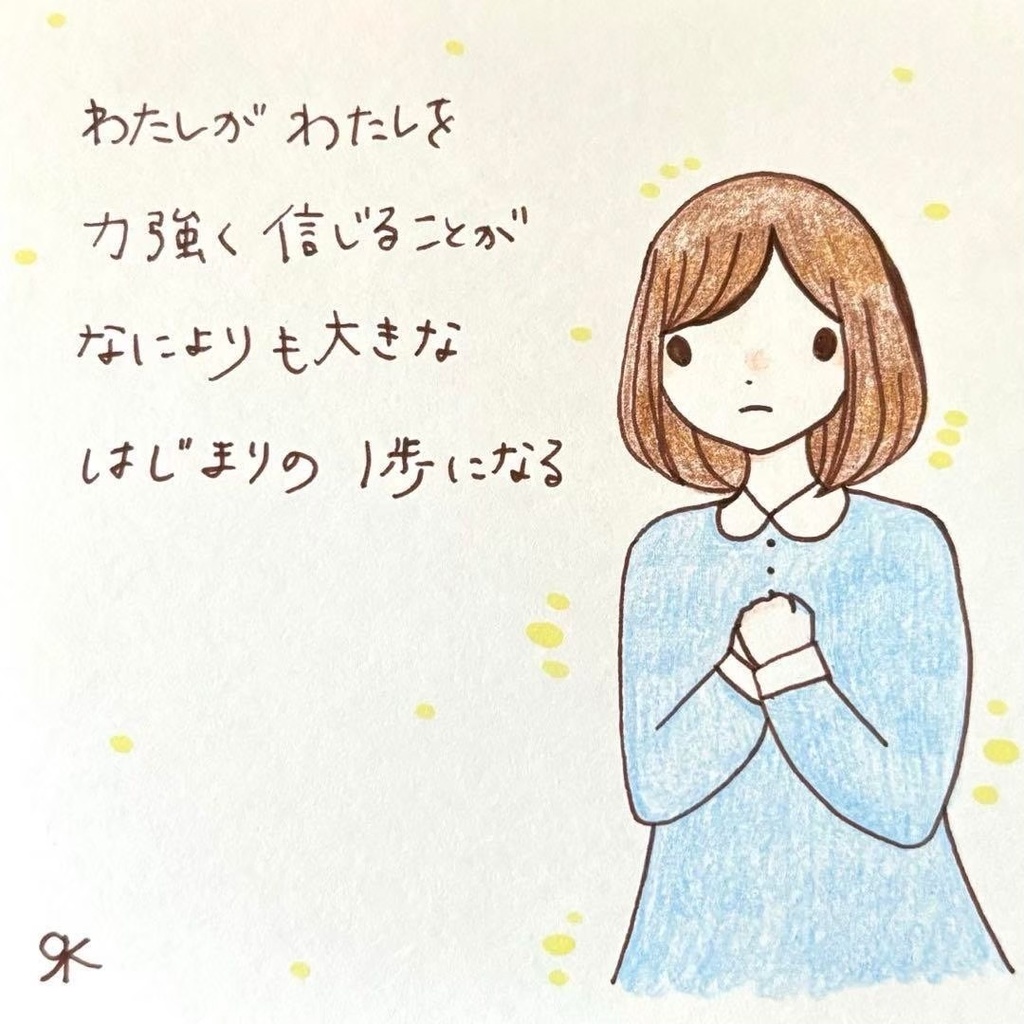 わたしが わたしを
力強く 信じることが
なによりも大きな
はじまりの 1歩になる